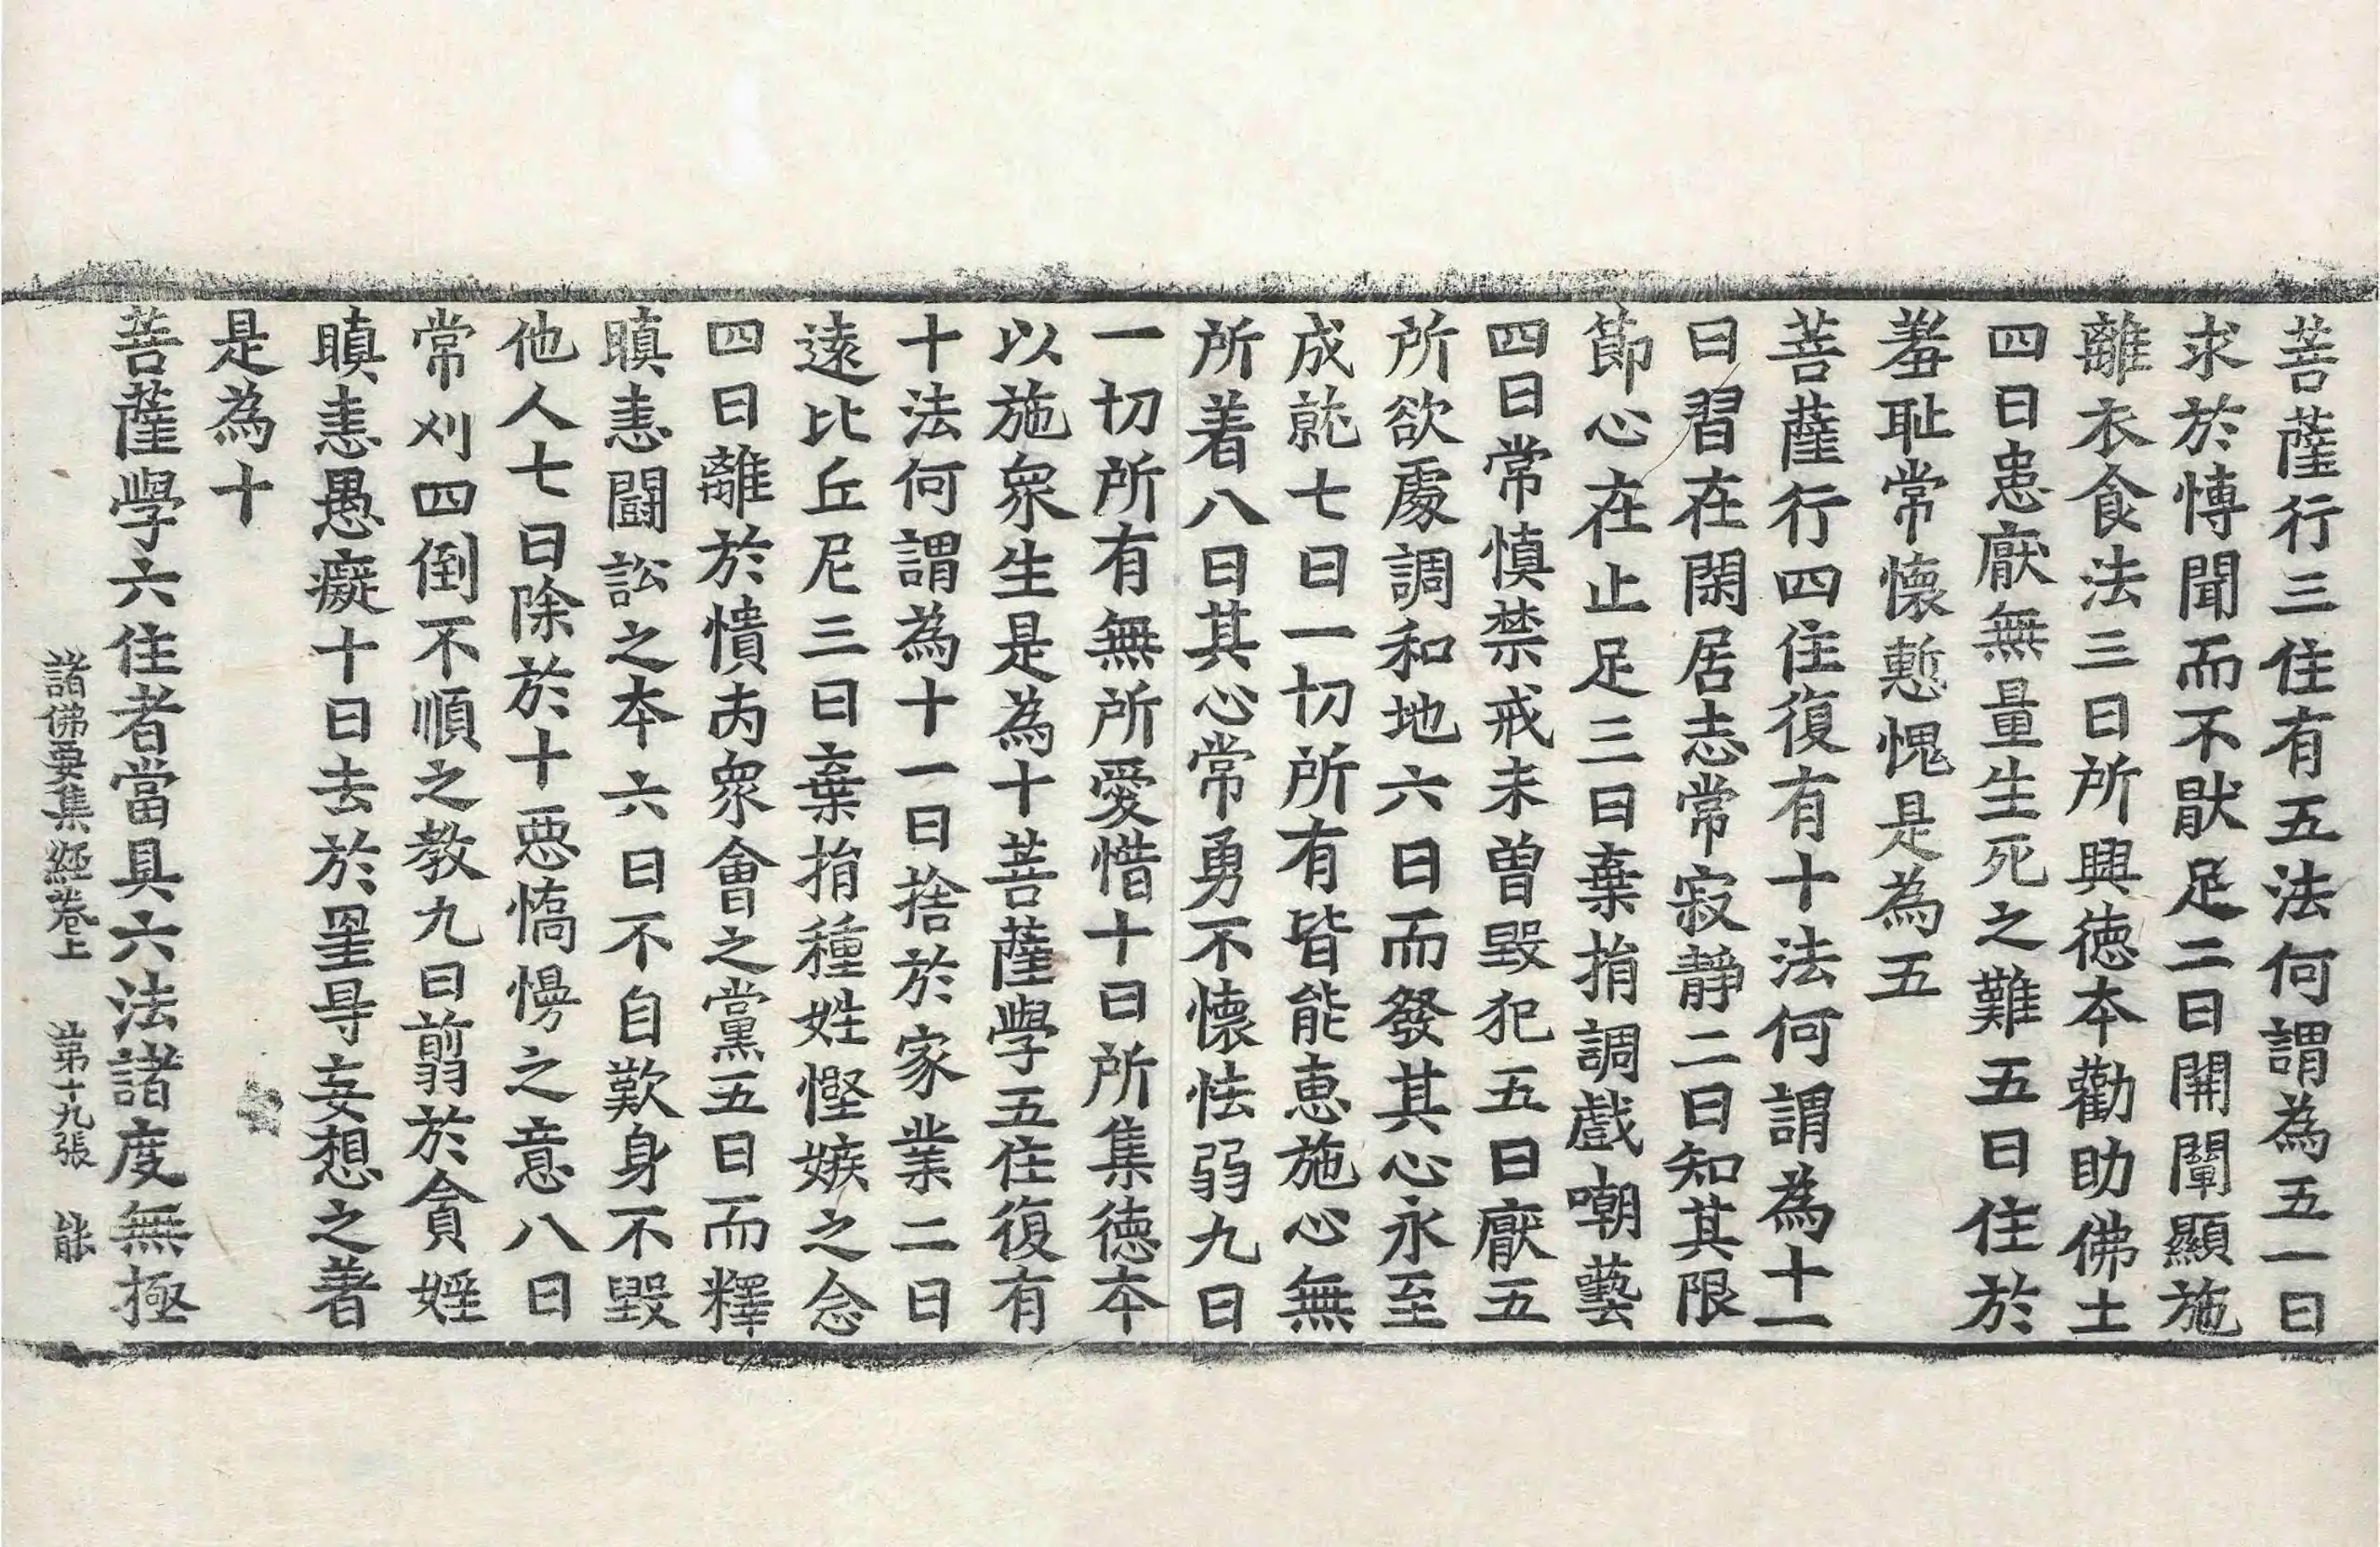 菩薩行三住有五法何謂為五一曰
求於博聞而不猒足二曰開闡顯施
離衣食法三曰所興德本勸助佛土
四曰患厭無量生死之難五曰住於
羞恥常懷慙愧是為五
菩薩行四住復有十法何謂為十一
曰習在閑居志常寂靜二曰知其限
節心在止足三曰棄捐調戲嘲藝
四曰常慎禁戒未曾毀犯五曰厭五
所欲處調和地六曰而發其心永至
成就七曰一切所有皆能惠施心無
所着八曰其心常勇不懷怯弱九曰
一切所有無所愛惜十曰所集德本
以施衆生是為十菩薩學五住復有
十法何謂為十一曰捨於家業二曰
遠比丘尼三曰棄捐種姓慳嫉之念
四曰離於憒丙衆會之黨五曰而釋
瞋恚鬪訟之本六曰不自歎身不毀
他人七曰除於十惡憍慢之意八曰
常刈四倒不順之教九曰翦於貪婬
瞋恚愚癡十曰去於罣㝵妄想之著
是為十
菩薩學六住者當具六法諸度無極
諸佛要集經卷上 第十九張 能